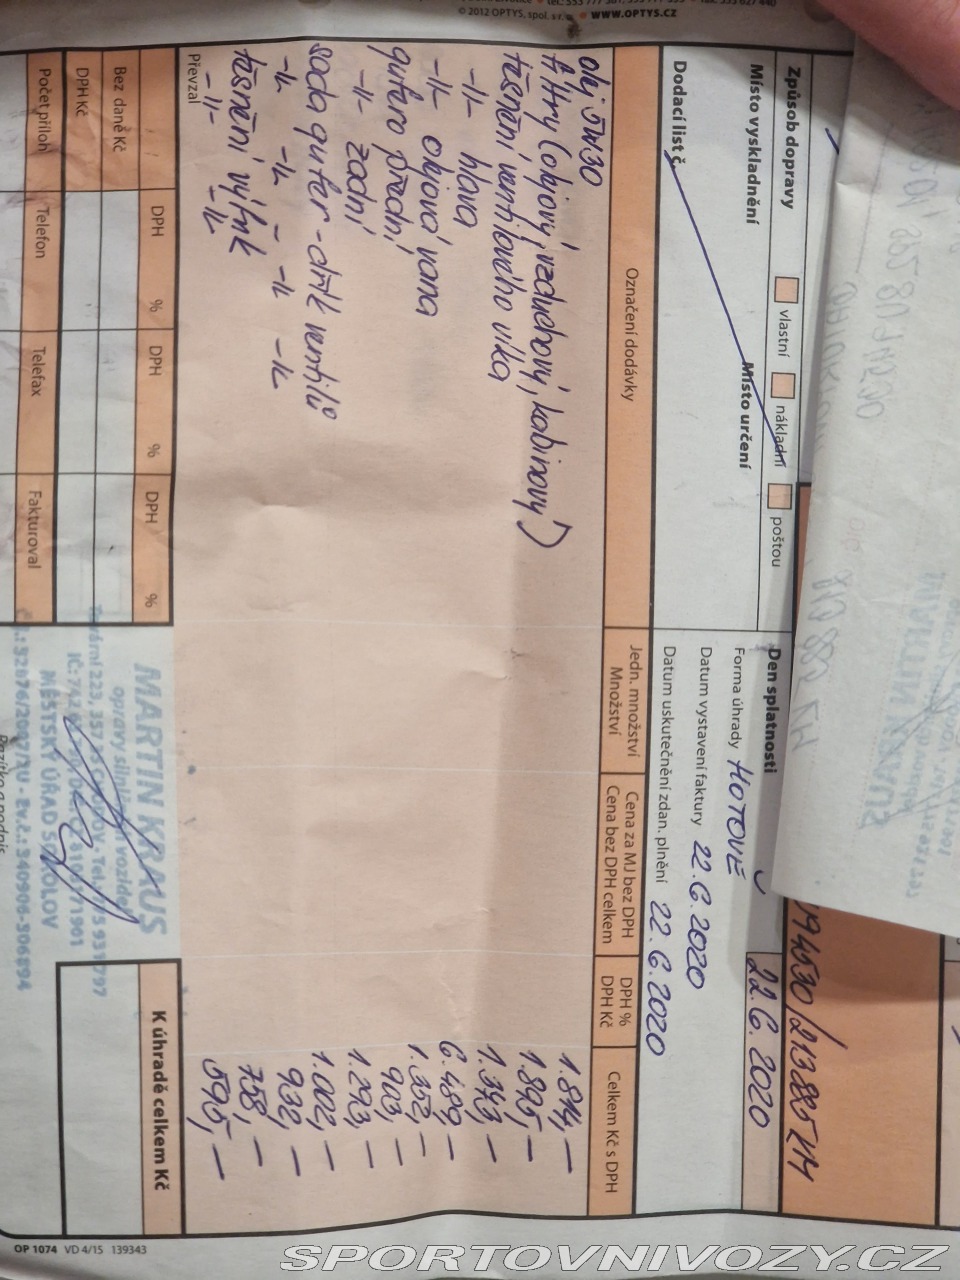 © 2012 OPTYS, spol. s r. o. • WWW.OPTYS.CZ
213885 KM
Způsob dopravy vlastní nákladní poštou
Den splatnosti 22.6.2020
Místo vyskladnění Místo určení
Forma úhrady HOTOVĚ
Datum vystavení faktury 22.6.2020
Dodací list č.
Datum uskutečnění zdan. plnění 22.6.2020
Označení dodávky
Jedn. množství
Množství
Cena za MJ bez DPH
Cena bez DPH celkem
DPH %
DPH Kč
Celkem Kč s DPH
olej 5W30 1.814,—
filtry (olejový, vzduchový, kabinový) 1.895,—
těsnění ventilového víka 1.343,—
-11- hlava 6.489,—
-11- olejová vana 1.352,—
gufero přední 903,—
-11- zadní 1.293,—
sada gufer - dřík ventilů 1.002,—
-11- -11- - -11- -11- 932,—
těsnění výfuk 758,—
-11- -11- 595,—
Převzal
DPH % DPH % DPH %
Bez daně Kč
DPH Kč
Počet příloh Telefon Telefax Fakturoval
MARTIN KRAUS
opravy silničních vozidel
MĚSTSKÝ ÚŘAD SOKOLOV
K úhradě celkem Kč
Razítko a podpis
OP 1074 VD 4/15 139343
SPORTOVNIVOZY.CZ